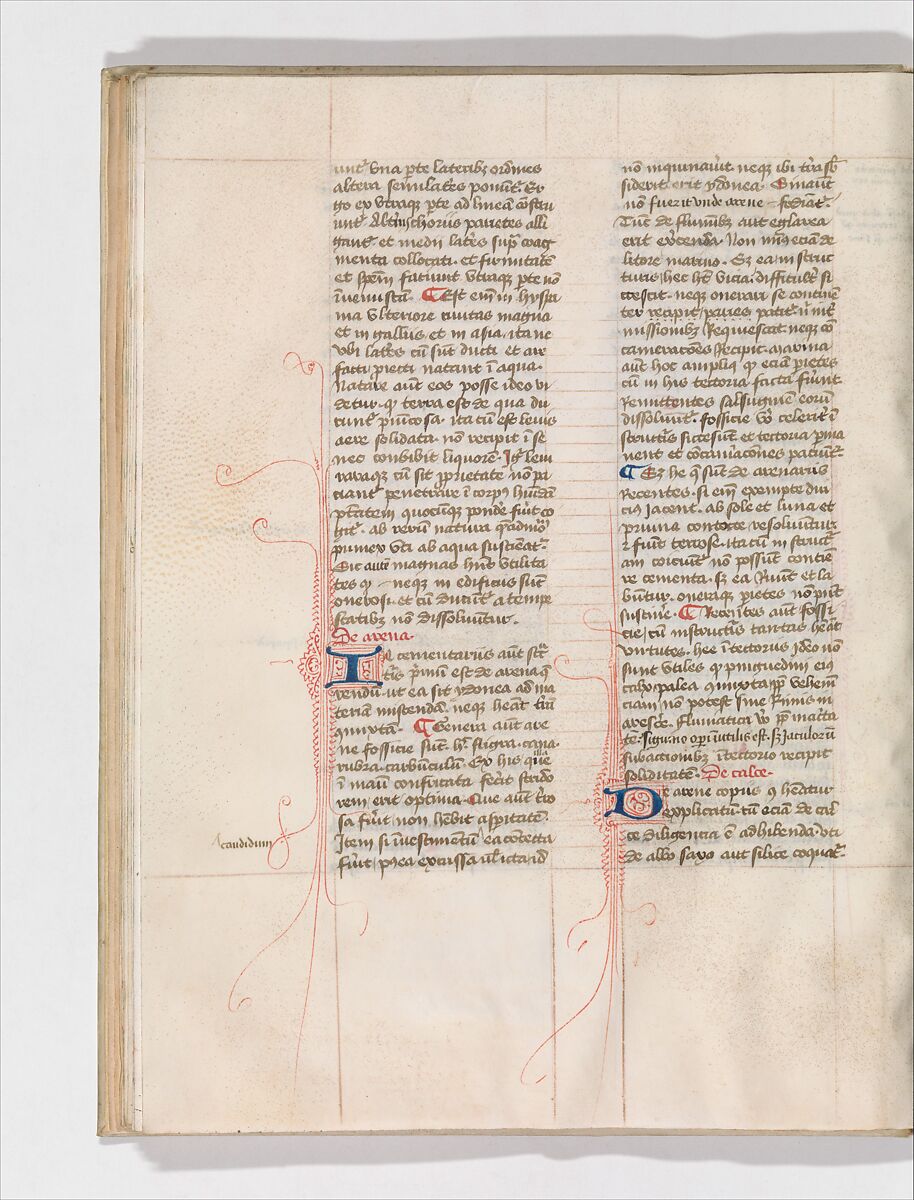 unt᷑ Una ꝑte lateribꝫ ordines
altera semilat̾es ponunt᷑. Er
go ex utraqꝫ ꝑte ad lineā cōstru
unt᷑ Alt̾nis choriis parietes alli
gant᷑ et medii lat̾es sup̾ coag
menta collocati et firmitatē
et spēm faciunt utraqꝫ ꝑte nō
īvenustā. ¶ Est em̄ in hyspa
nia Ulteriore civitas magna
et in galliis et in asia ita ne
ubi lat̾es cū sūt ducti et are
facti piecti natant ī aqua.
Natare aut̄ eos posse ideo vi
detur. ꝙ terra est de qua du
cunt᷑ pumicosa. ita cū est levis
aere solidata. nō recipit ī se
nec combibit liquorē. Igr̄ levi
raraqꝫ cū sit ꝓprietate nō pa
ciant᷑ penetrare ī corpꝰ humidā
pt̄atem quocūqꝫ pondē fu̾it co
git᷑. ab rerū natura
pumex uti ab aqua sustineat᷑.
Sic autē magnas hn̄t utilita
tes ꝙ neqꝫ in edificiis sūt
onerosi. et cū ducunt᷑ a tempe
statibꝫ nō dissolvuntur.
De arena.
In cementariis aut̄ st̾c
t̾is p̾mū est de arena q̄
rendū. ut ea sit ydonea ad ma
teriā miscendā. neqꝫ heat t̾rā
ꝯmixtā. ¶ Genera aut̄ are
ne fossicie sunt. h. nigra. cana.
rubra. carbunculū. Ex his que
ī manu confricata fec̾it strido
rem erit optima. Que aut̄ t̾ro
sa fu̾it non hēbit aspitatē.
Item si ī vestimentū ea coiecta
fu̾it postea excussa ul̾ icta id
candidum
nō inquinav̾it neqꝫ ibi t̾ra sb̾
siderit. erit ydonea. Si n aut̄
nō fuerit unde arene fodiant᷑.
Tūc de fluminibꝫ aut e glarea
erit excernda. Non min̾ eciā de
litore marino. Sꝫ ea in struc
turis hec hēt vicia. difficult̾ si
ccescit. neqꝫ onerari se continēt̾
ter recipit paries patit᷑. n̾ int̾
missionibꝫ Requiescat neqꝫ cō
camerac̄oēs Recipit. Marina
aut̄ hoc ampliꝰ ꝙ eciā p̾ietes
cū in his tectoria facta fu̾int
Remittentes salsuginē eorū
dissolvunt᷑. fossicie v̾o celerit̾ ī
structuris siccescūt. et tectoria ꝑma
nent et cōcam̾ac̄ones paciunt᷑.
¶ Sꝫ he q̄ sūt de arenariis
Recentes. si em̄ exempte diu
cius jacent. ab sole et luna et
pruina concocte resolvuntur
ꝛ fiunt terrose. ita cū in struct̾
am coiciunt᷑ nō possūt contine
re cementa. sꝫ ea ruūt et la
buntur. oneraqꝫ p̾ietes nō pn̄t
sustine̾. ¶ Recentes aut̄ fossi
cie cū in struct̾is tantas heāt
virtutes. hee ī tectoriis ideo nō
sunt utiles ꝙ pinguedini eiꝰ
calx palea ꝯmixta ꝓpt̾ vehem̄
ciam nō potest sine rimis in
arescere. fluviatica v̾o ꝓpt̾ macrita
tē. signīo opus inutilis est. sꝫ jaculorū
subactionibꝫ ī tectorio recipit
soliditatē. De calce.
De arene copiis ꝯ hēdetur
explicitū. tū eciā de cal
ce diligencia ē adhibenda. uti
de albo saxo aut silice coquat᷑.